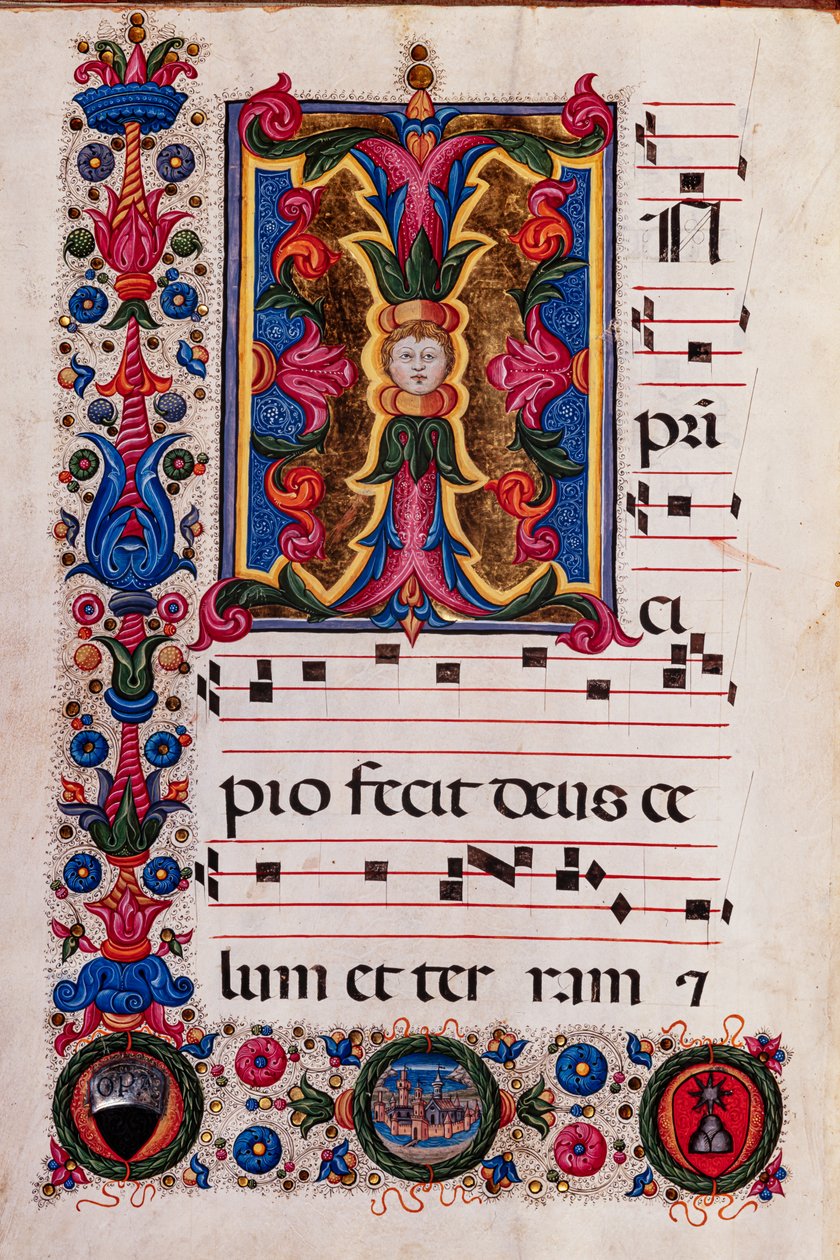 IN
prī
ci
pio fecit deus ce
lum et ter ram ⁊
OPA